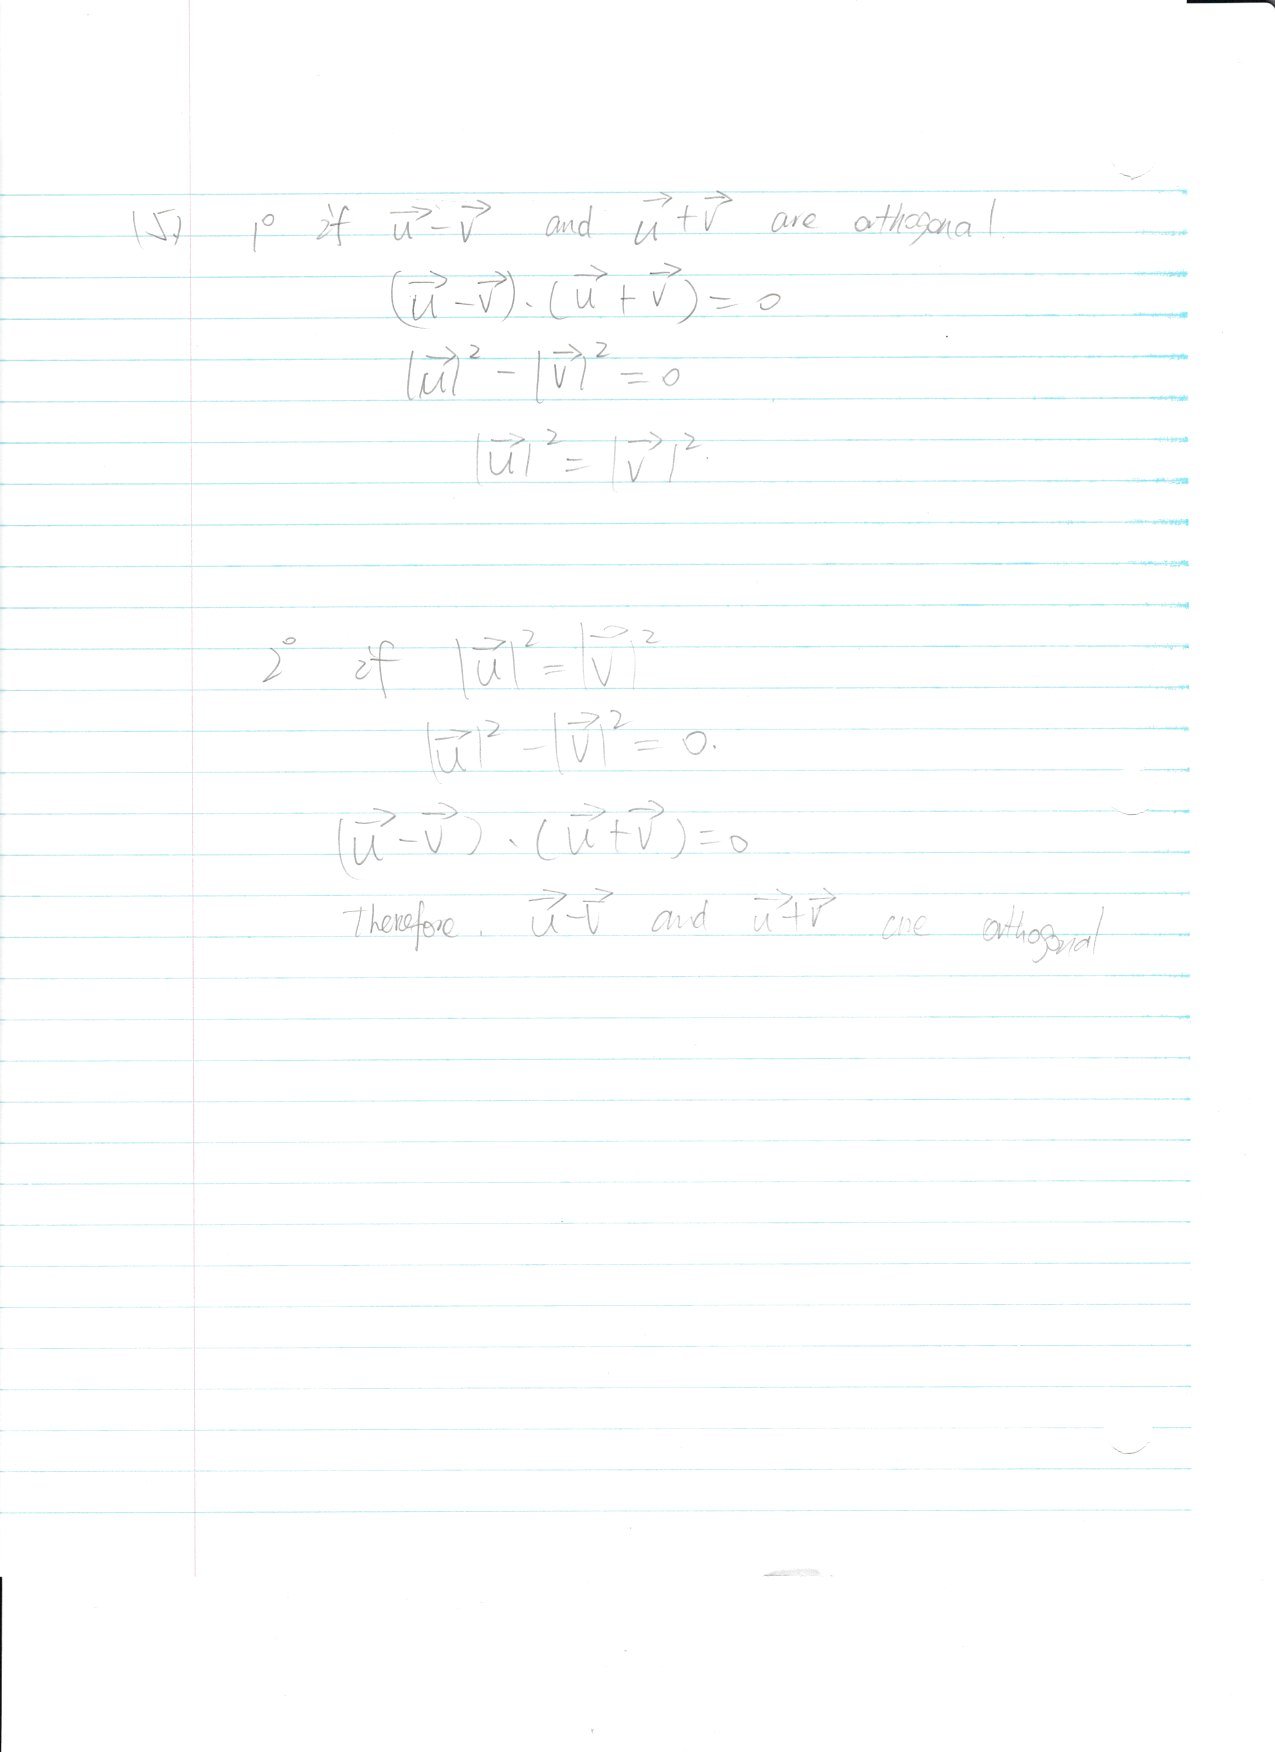 (5) 1° if u⃗ - v⃗ and u⃗ + v⃗ are orthogonal.
(u⃗ - v⃗) · (u⃗ + v⃗) = 0
|u⃗|² - |v⃗|² = 0
|u⃗|² = |v⃗|².
2° if |u⃗|² = |v⃗|²
|u⃗|² - |v⃗|² = 0.
(u⃗ - v⃗) · (u⃗ + v⃗) = 0
Therefore. u⃗ - v⃗ and u⃗ + v⃗ are orthogonal